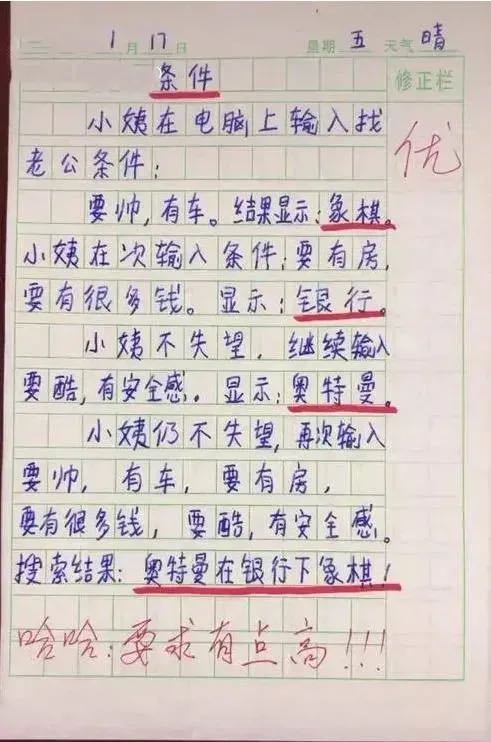 1月17日 星期五 天气晴
条件
修正栏
小姨在电脑上输入找
优
老公条件：
要帅，有车。结果显示：象棋。
小姨在次输入条件：要有房，
要有很多钱。显示：银行。
小姨不失望，继续输入
要酷，有安全感。显示：奥特曼。
小姨仍不失望，再次输入
要帅，有车，要有房，
要有很多钱，要酷，有安全感。
搜索结果：奥特曼在银行下象棋！
哈哈：要求有点高！！！